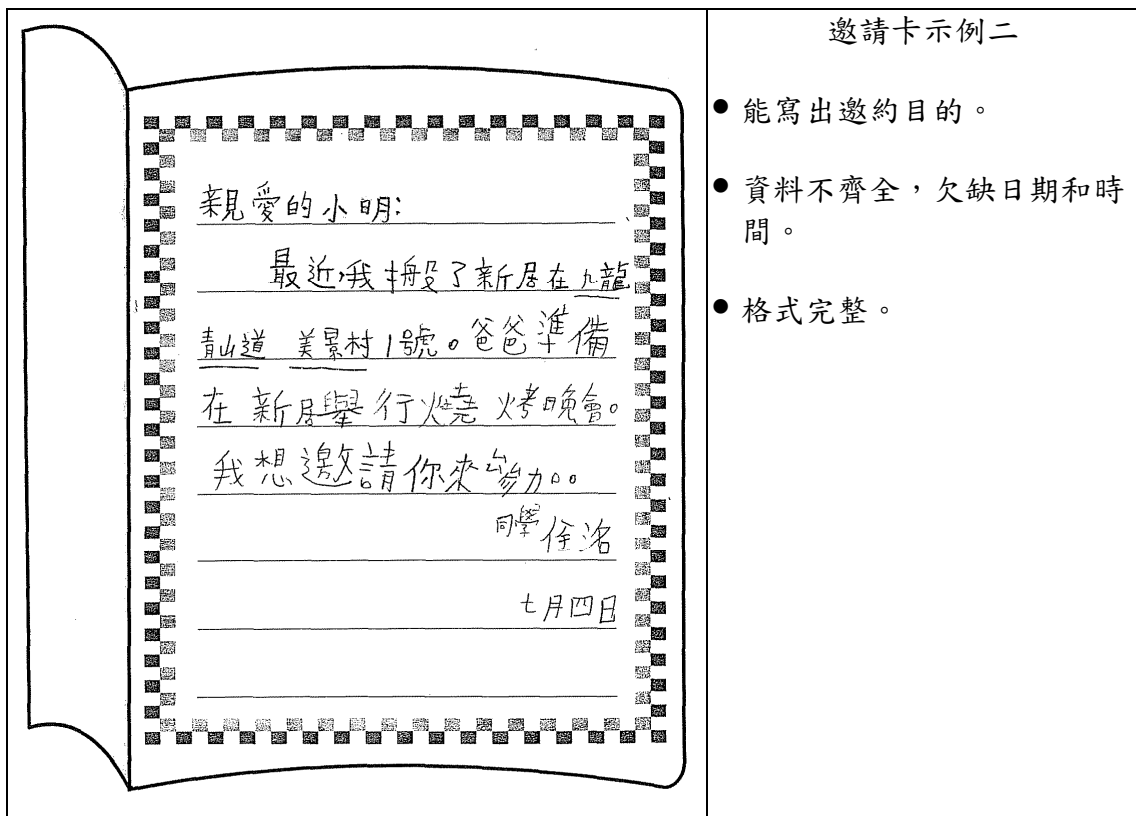 親愛的小明:
最近,我搬了新居在九龍
青山道 美景村1號。爸爸準備
在新居舉行燒烤晚會。
我想邀請你來參加。
同學 任洺
七月四日
邀請卡示例二
● 能寫出邀約目的。
● 資料不齊全，欠缺日期和時
間。
● 格式完整。